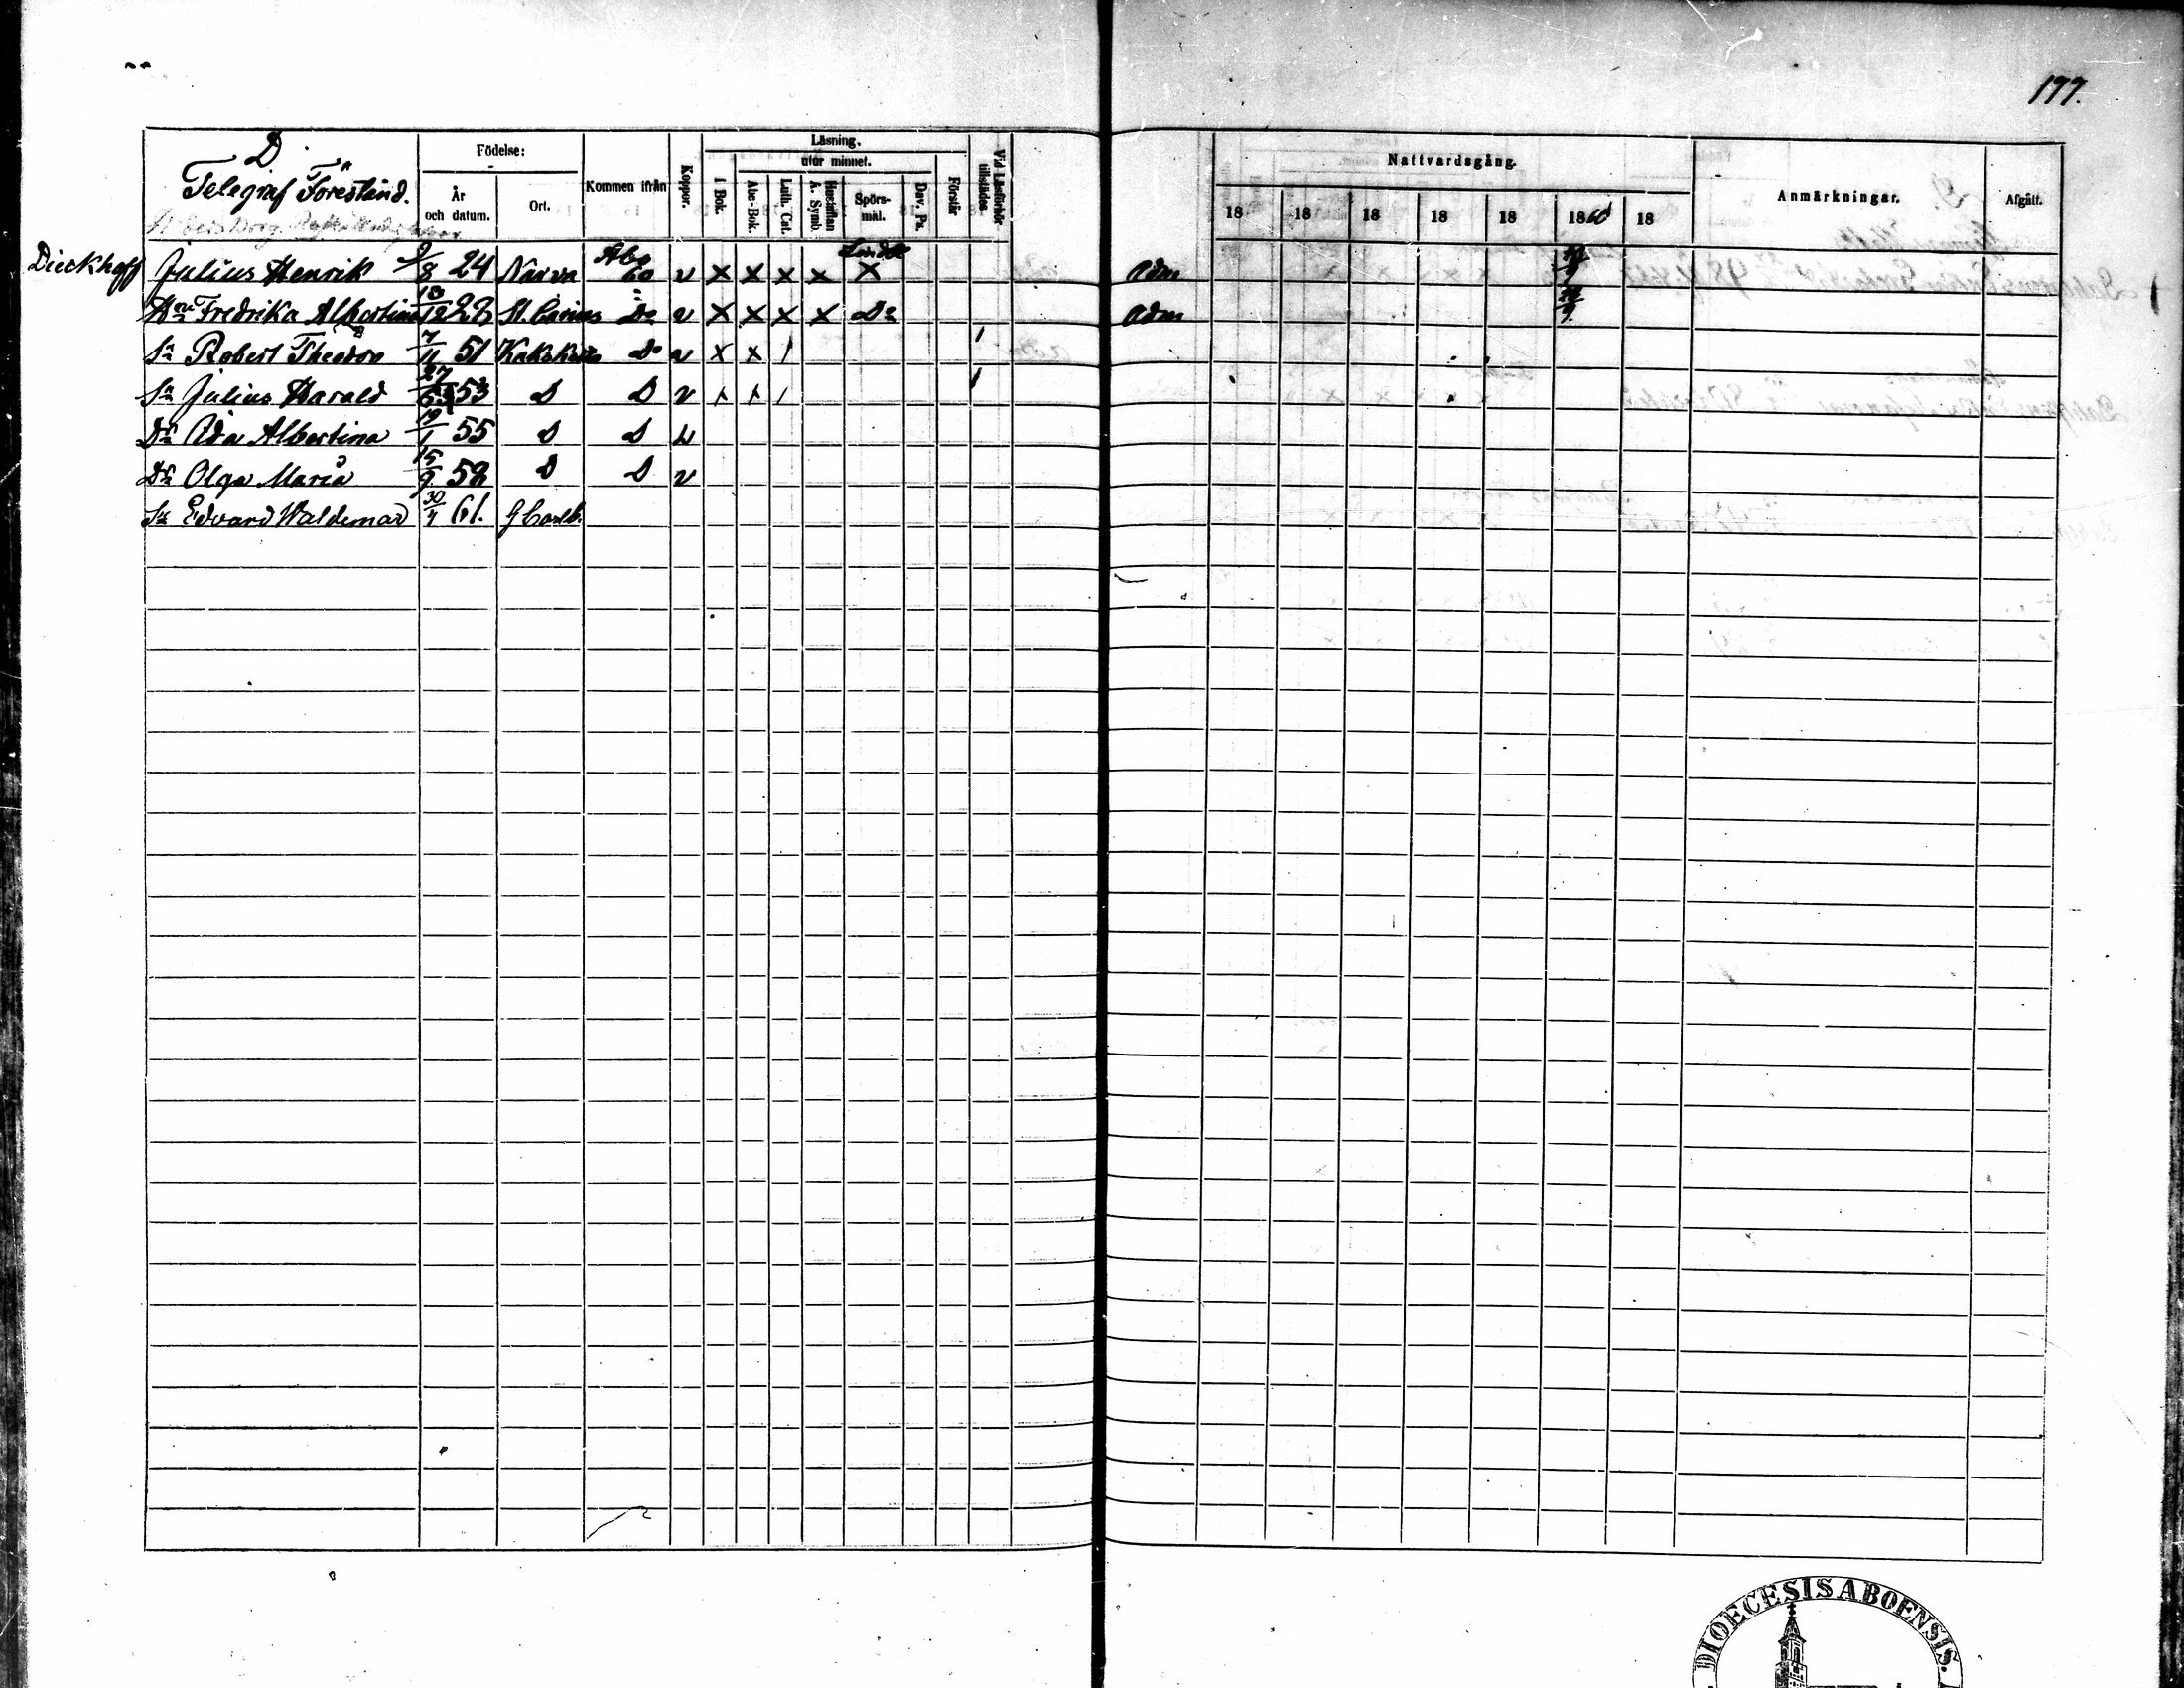 177.
D.
Telegraf Föreständ.
Födelse:
År och datum.
Ort.
Kommen ifrån
Koppor.
Läsning.
I Bok.
utur minnet.
Abc-Bok.
Luth. Cat.
Hustaflan A. Symb.
Spörs-mål.
Dav. Ps.
Förstår
Vid Läsförhör tillstädes
Nattvardsgång.
18 18 18 18 18 1860 18
Anmärkningar.
Afgått.
Dieckhoff Julius Henrik 9/8 24 Narva Åbo 60 v x x x x x Adm
Fredrika Albertina 12 St. Carins Do v x x x x Do Adm
Sn Robert Theodor 7/11 51 Kakskerta Do v x x / /
Sn Julius Harald 27 53 D D v
Dr Ada Albertina 19/1 55 D D
Dr Olga Maria 15/9 58 D D v
Sn Edvard Waldemar 30/4 61. GCarleb.
DIOECESIS ABOENSIS.